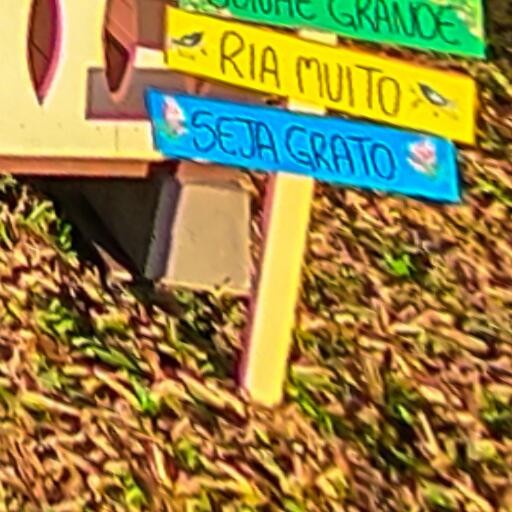 SONHE GRANDE
RIA MUITO
SEJA GRATO